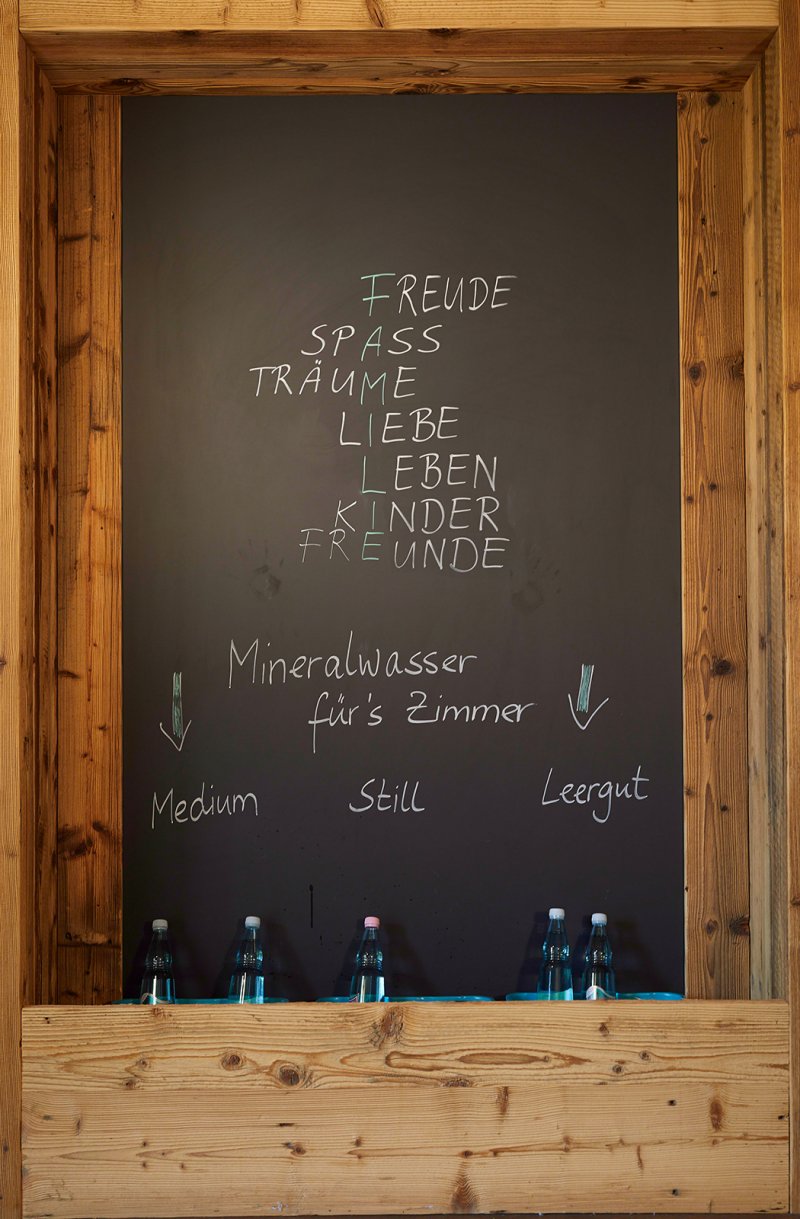 FREUDE
SPASS
TRÄUME
LIEBE
LEBEN
KINDER
FREUNDE
Mineralwasser
für's Zimmer
Medium Still Leergut